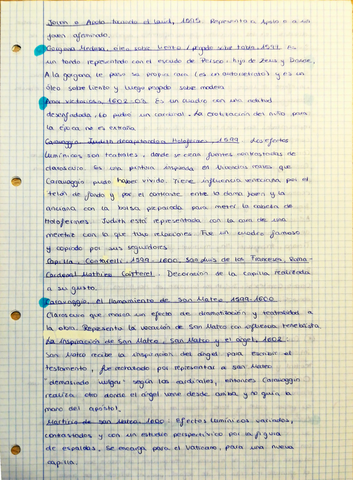 Joven o Apolo tocando el laúd, 1595. Representa a Apolo o a un
joven afeminado.
Gorgona Medusa, óleo sobre lienzo / pegado sobre tabla, 1597. Es
un tondo representado con el escudo de Perseo, hijo de Zeus y Danae,
A la gorgona le puso su propia cara (es un autorretrato) y es un
óleo sobre lienzo y luego pegado sobre madera.
Amor victorioso, 1602-03. Es un cuadro con una actitud
desenfadada. Lo pidió un cardenal. La exaltación del niño para
la época no es extraña.
Caravaggio. Judith decapitando a Holofernes, 1599. Los efectos
lumínicos son teatrales, donde se crean fuertes contrastes de
claroscuro. Es una pintura impresa en vivencias reales que
Caravaggio pudo haber vivido. Tiene influencia veneciana por el
telón de fondo y por el contraste entre la dama joven y la
anciana con la bolsa preparada para meter la cabeza de
Holofernes. Judith está representada con la cara de una
meretriz con la que tuvo relaciones. Fue un cuadro famoso
y copiado por sus seguidores.
Capilla Contarelli, 1599-1600. San Luis de los Franceses, Roma-
Cardenal Mathieu Cointerel. Decoración de la capilla realizada
a su gusto.
Caravaggio. El llamamiento de San Mateo 1599-1600
Claroscuro que marca un efecto de dramatización y teatralidad a
la obra. Representa la vocación de San Mateo con influencia tenebrista.
La inspiración de San Mateo, San Mateo y el ángel, 1602:
San Mateo recibe la inspiración del ángel para escribir el
testamento, fue rechazado por representar a San Mateo
"demasiado vulgar" según los cardenales, entonces Caravaggio
realiza otro donde el ángel viene desde arriba y no guía la
mano del apóstol.
Martirio de San Mateo, 1600: Efectos lumínicos variados,
contrastados y con un estudio perspectívico por la figura
de espaldas. Se encarga para el Vaticano, para una nueva
capilla.